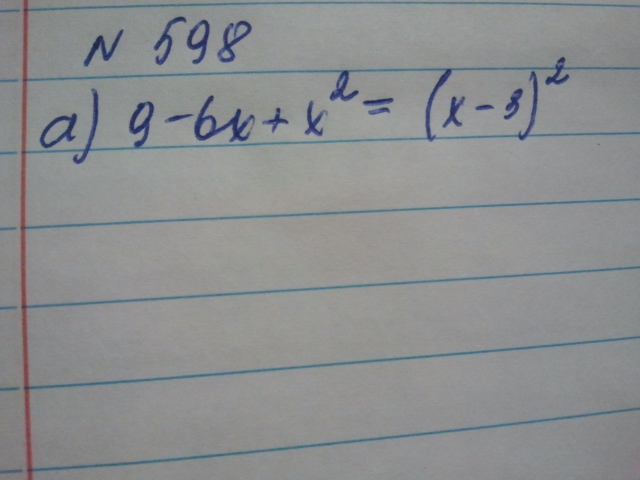 N 598
а) 9-6x+x²=(x-3)²